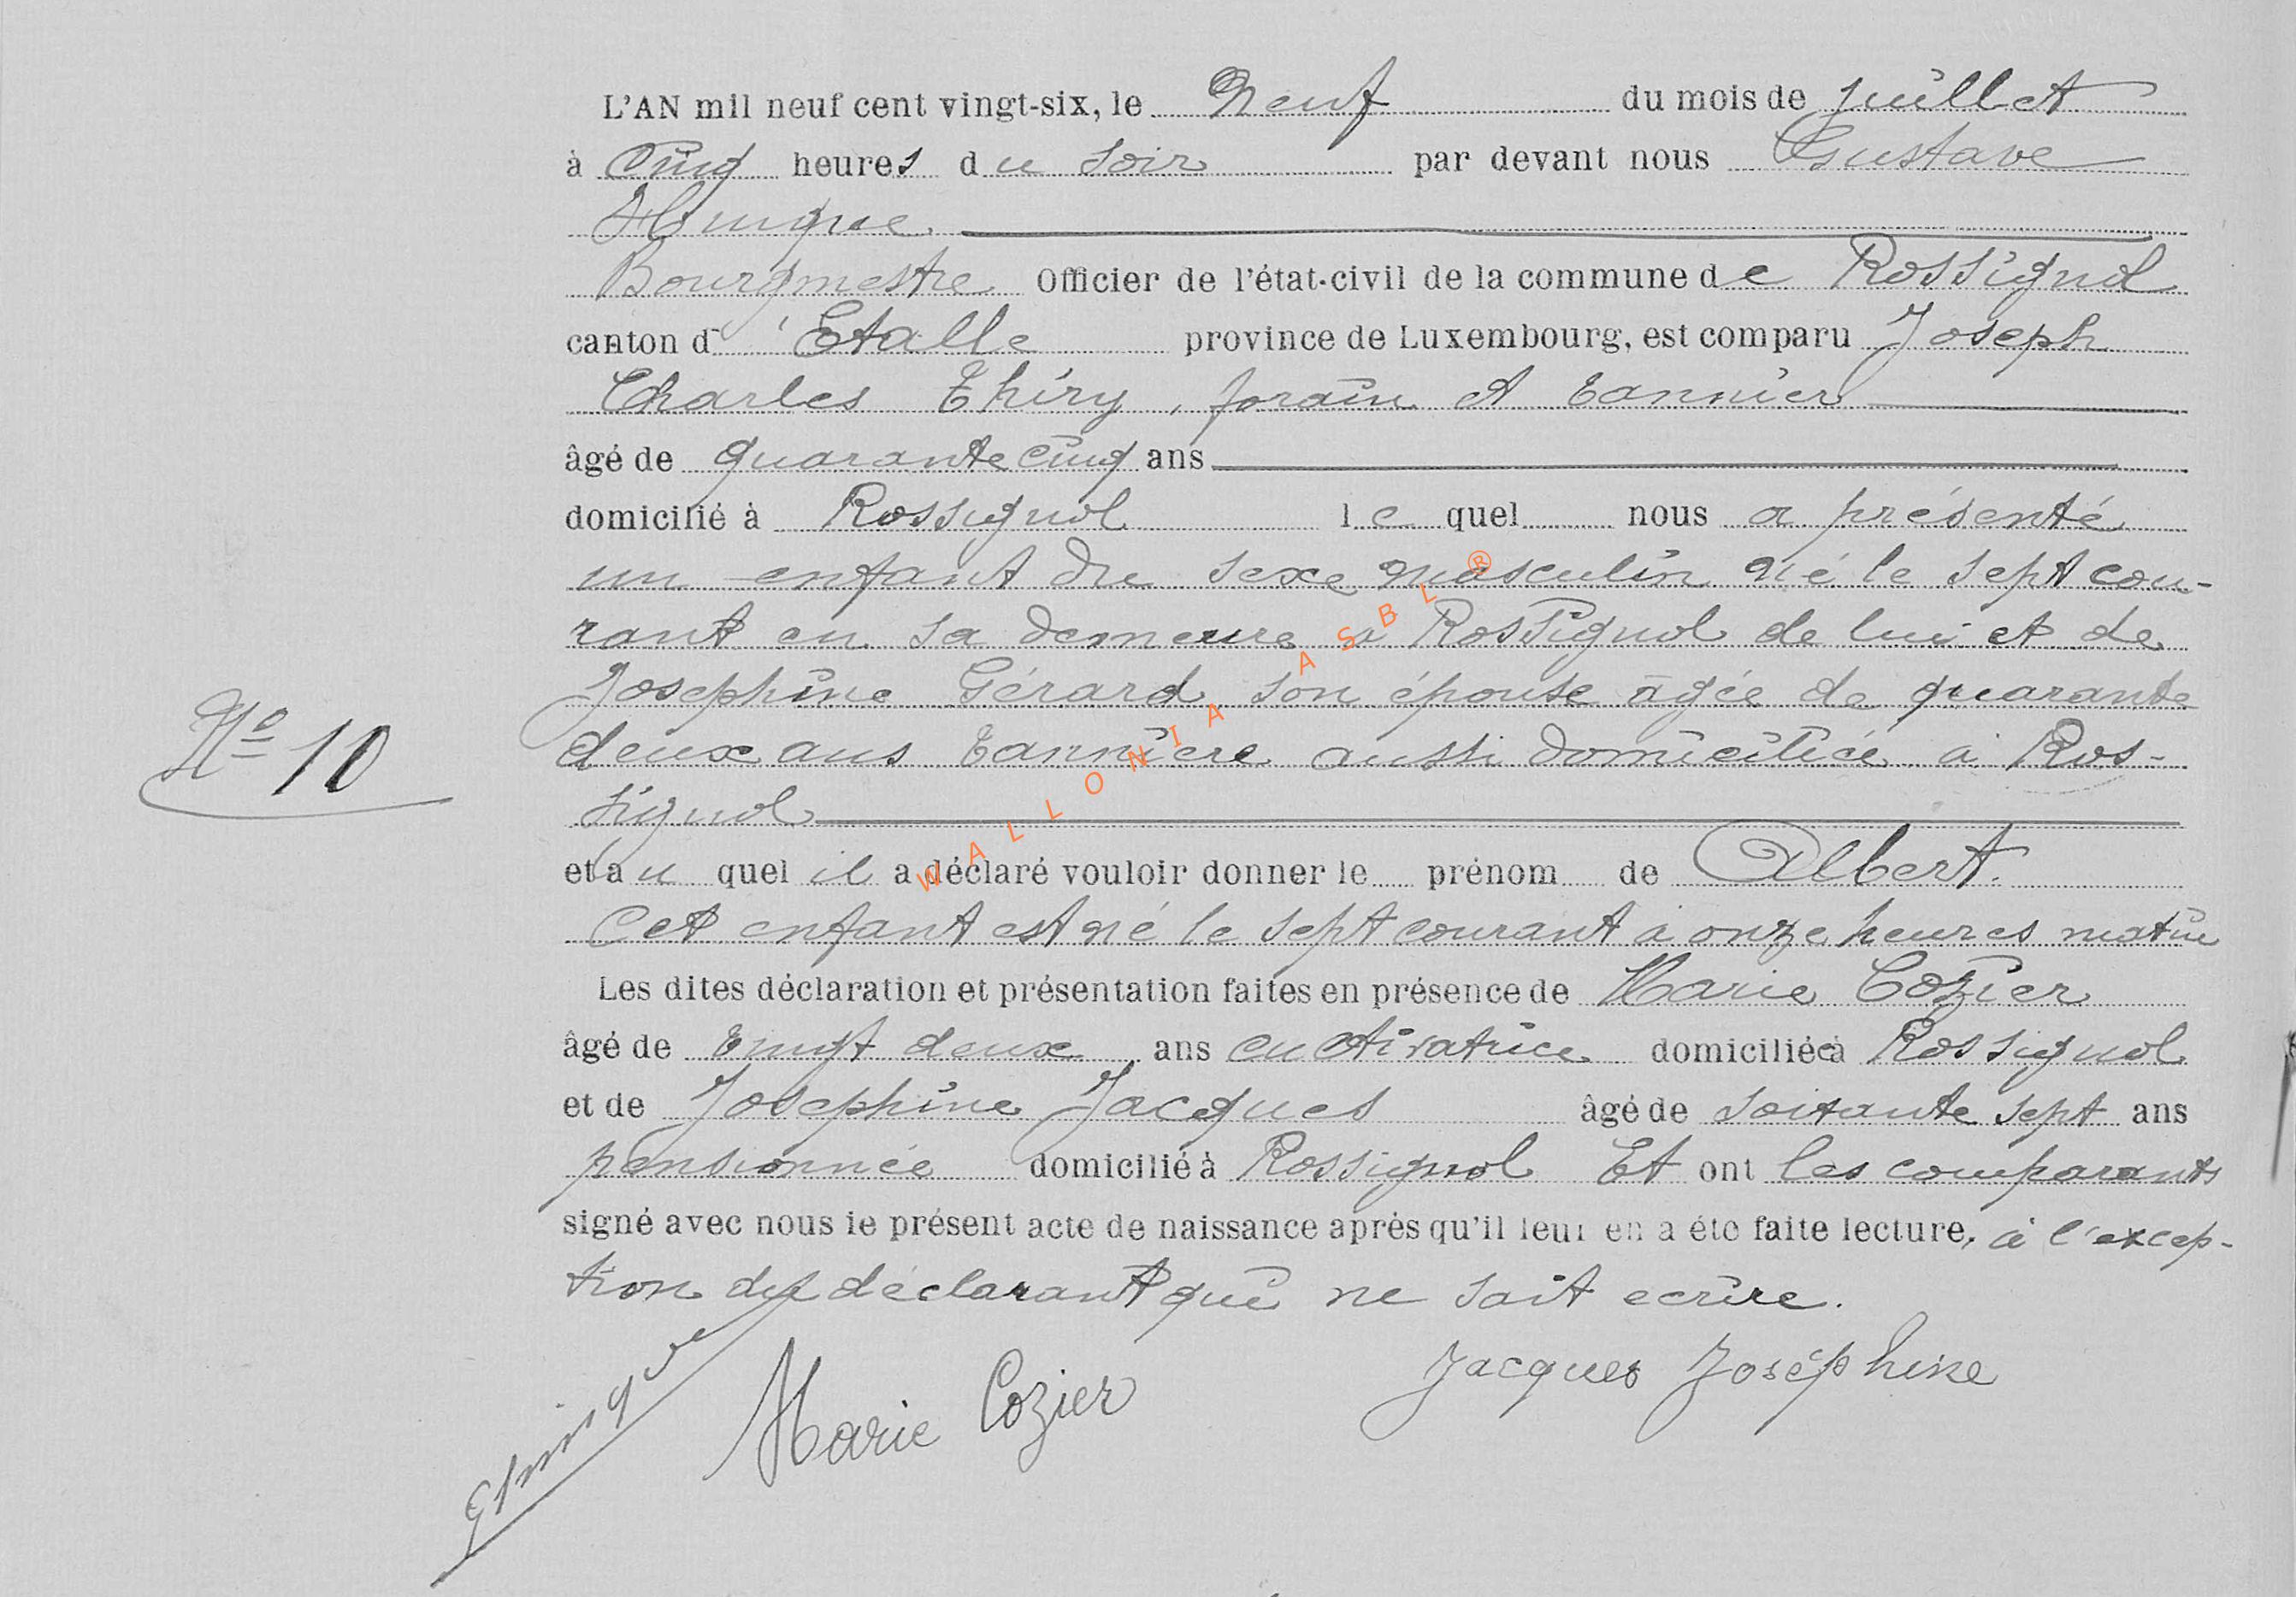 L'AN mil neuf cent vingt-six, le Neuf du mois de juillet
à Cinq heures du soir par devant nous Gustave
Hinique
Bourgmestre Officier de l'état-civil de la commune de Rossignol
canton d'Etalle province de Luxembourg, est comparu Joseph
Charles Thiry, forain et vannier
âgé de quarante cinq ans
domicilié à Rossignol lequel nous a présenté
un enfant du sexe masculin né le sept cou-
rant en sa demeure à Rossignol de lui et de
Joséphine Gérard son épouse âgée de quarante
deux ans vannière aussi domiciliée à Ros-
signol
N° 10
et auquel il a déclaré vouloir donner le prénom de Albert.
Cet enfant est né le sept courant à onze heures matin
Les dites déclaration et présentation faites en présence de Marie Cozier
âgé de vingt deux ans cultivatrice domiciliée à Rossignol
et de Joséphine Jacques âgé de soixante sept ans
pensionnée domicilié à Rossignol Et ont les comparants
signé avec nous le présent acte de naissance après qu'il leur en a été faite lecture, à l'excep-
tion du déclarant qui ne sait ecrire.
Marie Cozier
Jacques Joséphine
WALLONIA ASBL ®